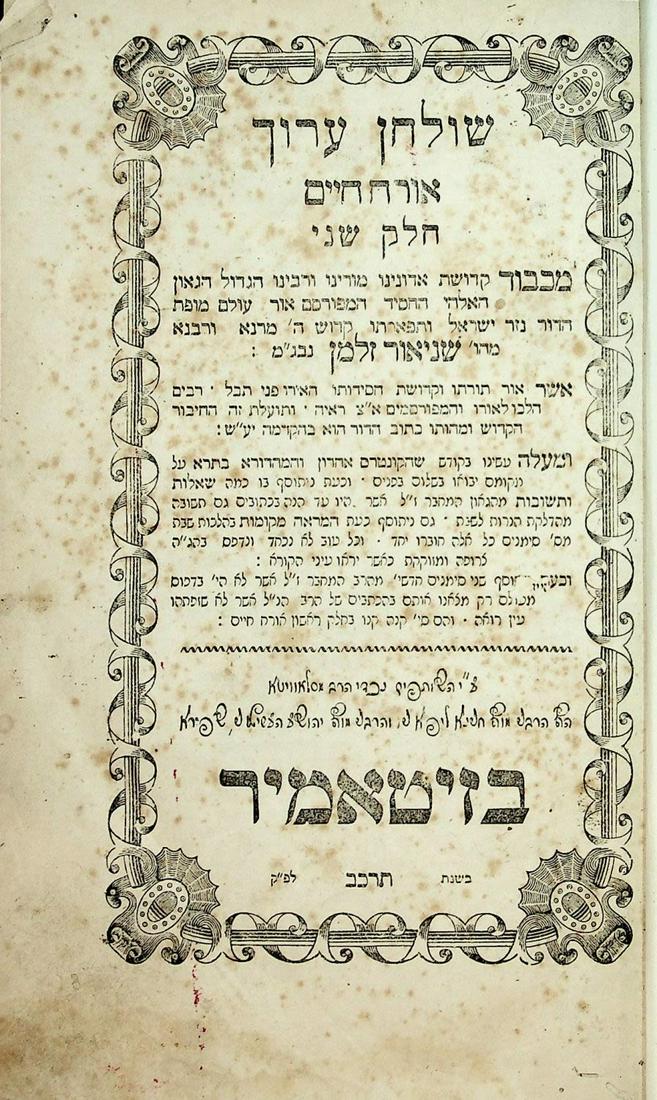 שולחן ערוך
אורח חיים
חלק שני
מכבוד קדושת אדונינו מורינו ורבינו הגדול הגאון
האלהי החסיד המפורסם אור עולם מופת
הדור נזר ישראל ותפארתו קדוש ה' מרנא ורבנא
מהו' שניאור זלמן נבג"מ :
אשר אור תורתו וקדושת חסידותו האירו פני תבל · רבים
הלכו לאורו והמפורסמים א"צ ראיה · ותועלת זה החיבור
הקדוש ומהותו כתוב הדור הוא בהקדמה יע"ש :
ומעלה עשינו בקודש שהקונטרס אחרון והמהדורא בתרא על
מקומם יבואו בשלום בפנים · וכעת ניתוסף בו כמה שאלות
ותשובות מהגאון המחבר ז"ל אשר היו עד הנה בכתובים גם תשובה
מהדלקת הנרות לשבת · גם ניתוסף כעת המראה מקומות בהלכות שבת
מס' סימנים כל אלה חוברו יחד · וכל טוב לא נכחד ונדפס בהג"ה
צרופה ומזוקקת כאשר יראו עיני הקורא :
וכעת שני סימנים חדשי' מהרב המחבר ז"ל אשר לא הי' בדפוס
מעולם רק מצאנו אותם בהכתבים של הרב הנ"ל אשר לא שזפתהו
עין רואה · והם סי' קנה קנו בחלק ראשון אורח חיים :
ע"י השותפים נכדי הרב מסלאוויטא
ה"ה הרבני מוה' חנינא ליפא נ"י, והרבני מוה' יהושע העשיל נ"י, שפירא
בזיטאמיר
בשנת תרכב לפ"ק